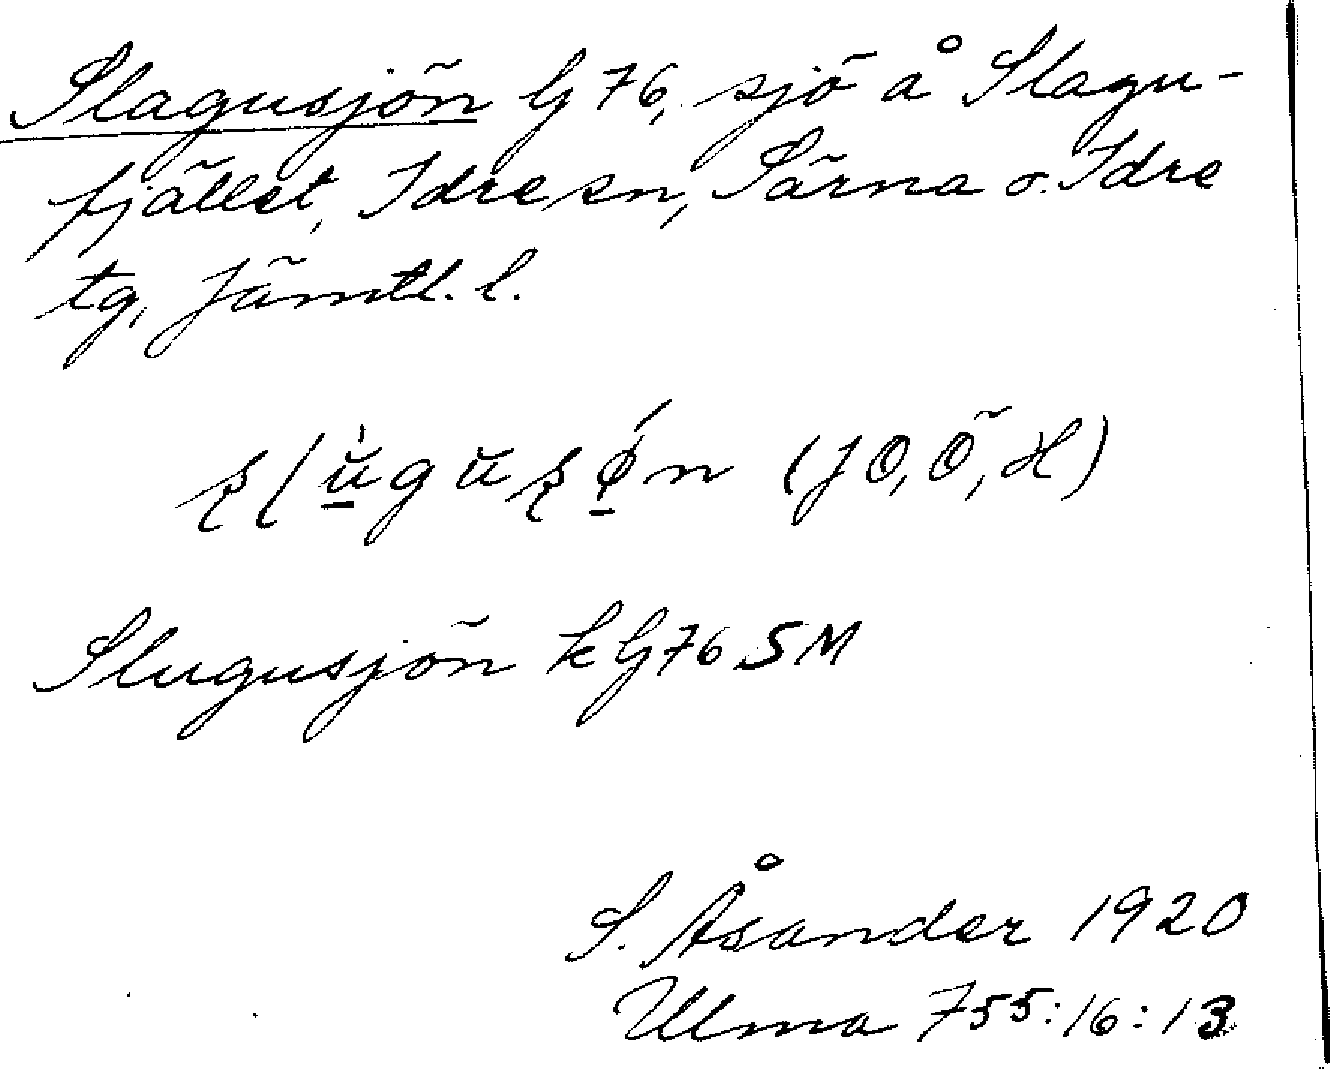 Slagusjön G 76, sjö å Slagu-
fjället, Idre sn, Särna o. Idre
tg, Jämtl. l.
(JO, Ö, H)
Slugusjön k G 76 SM
S. Åsander 1920
Ulma 755:16:13